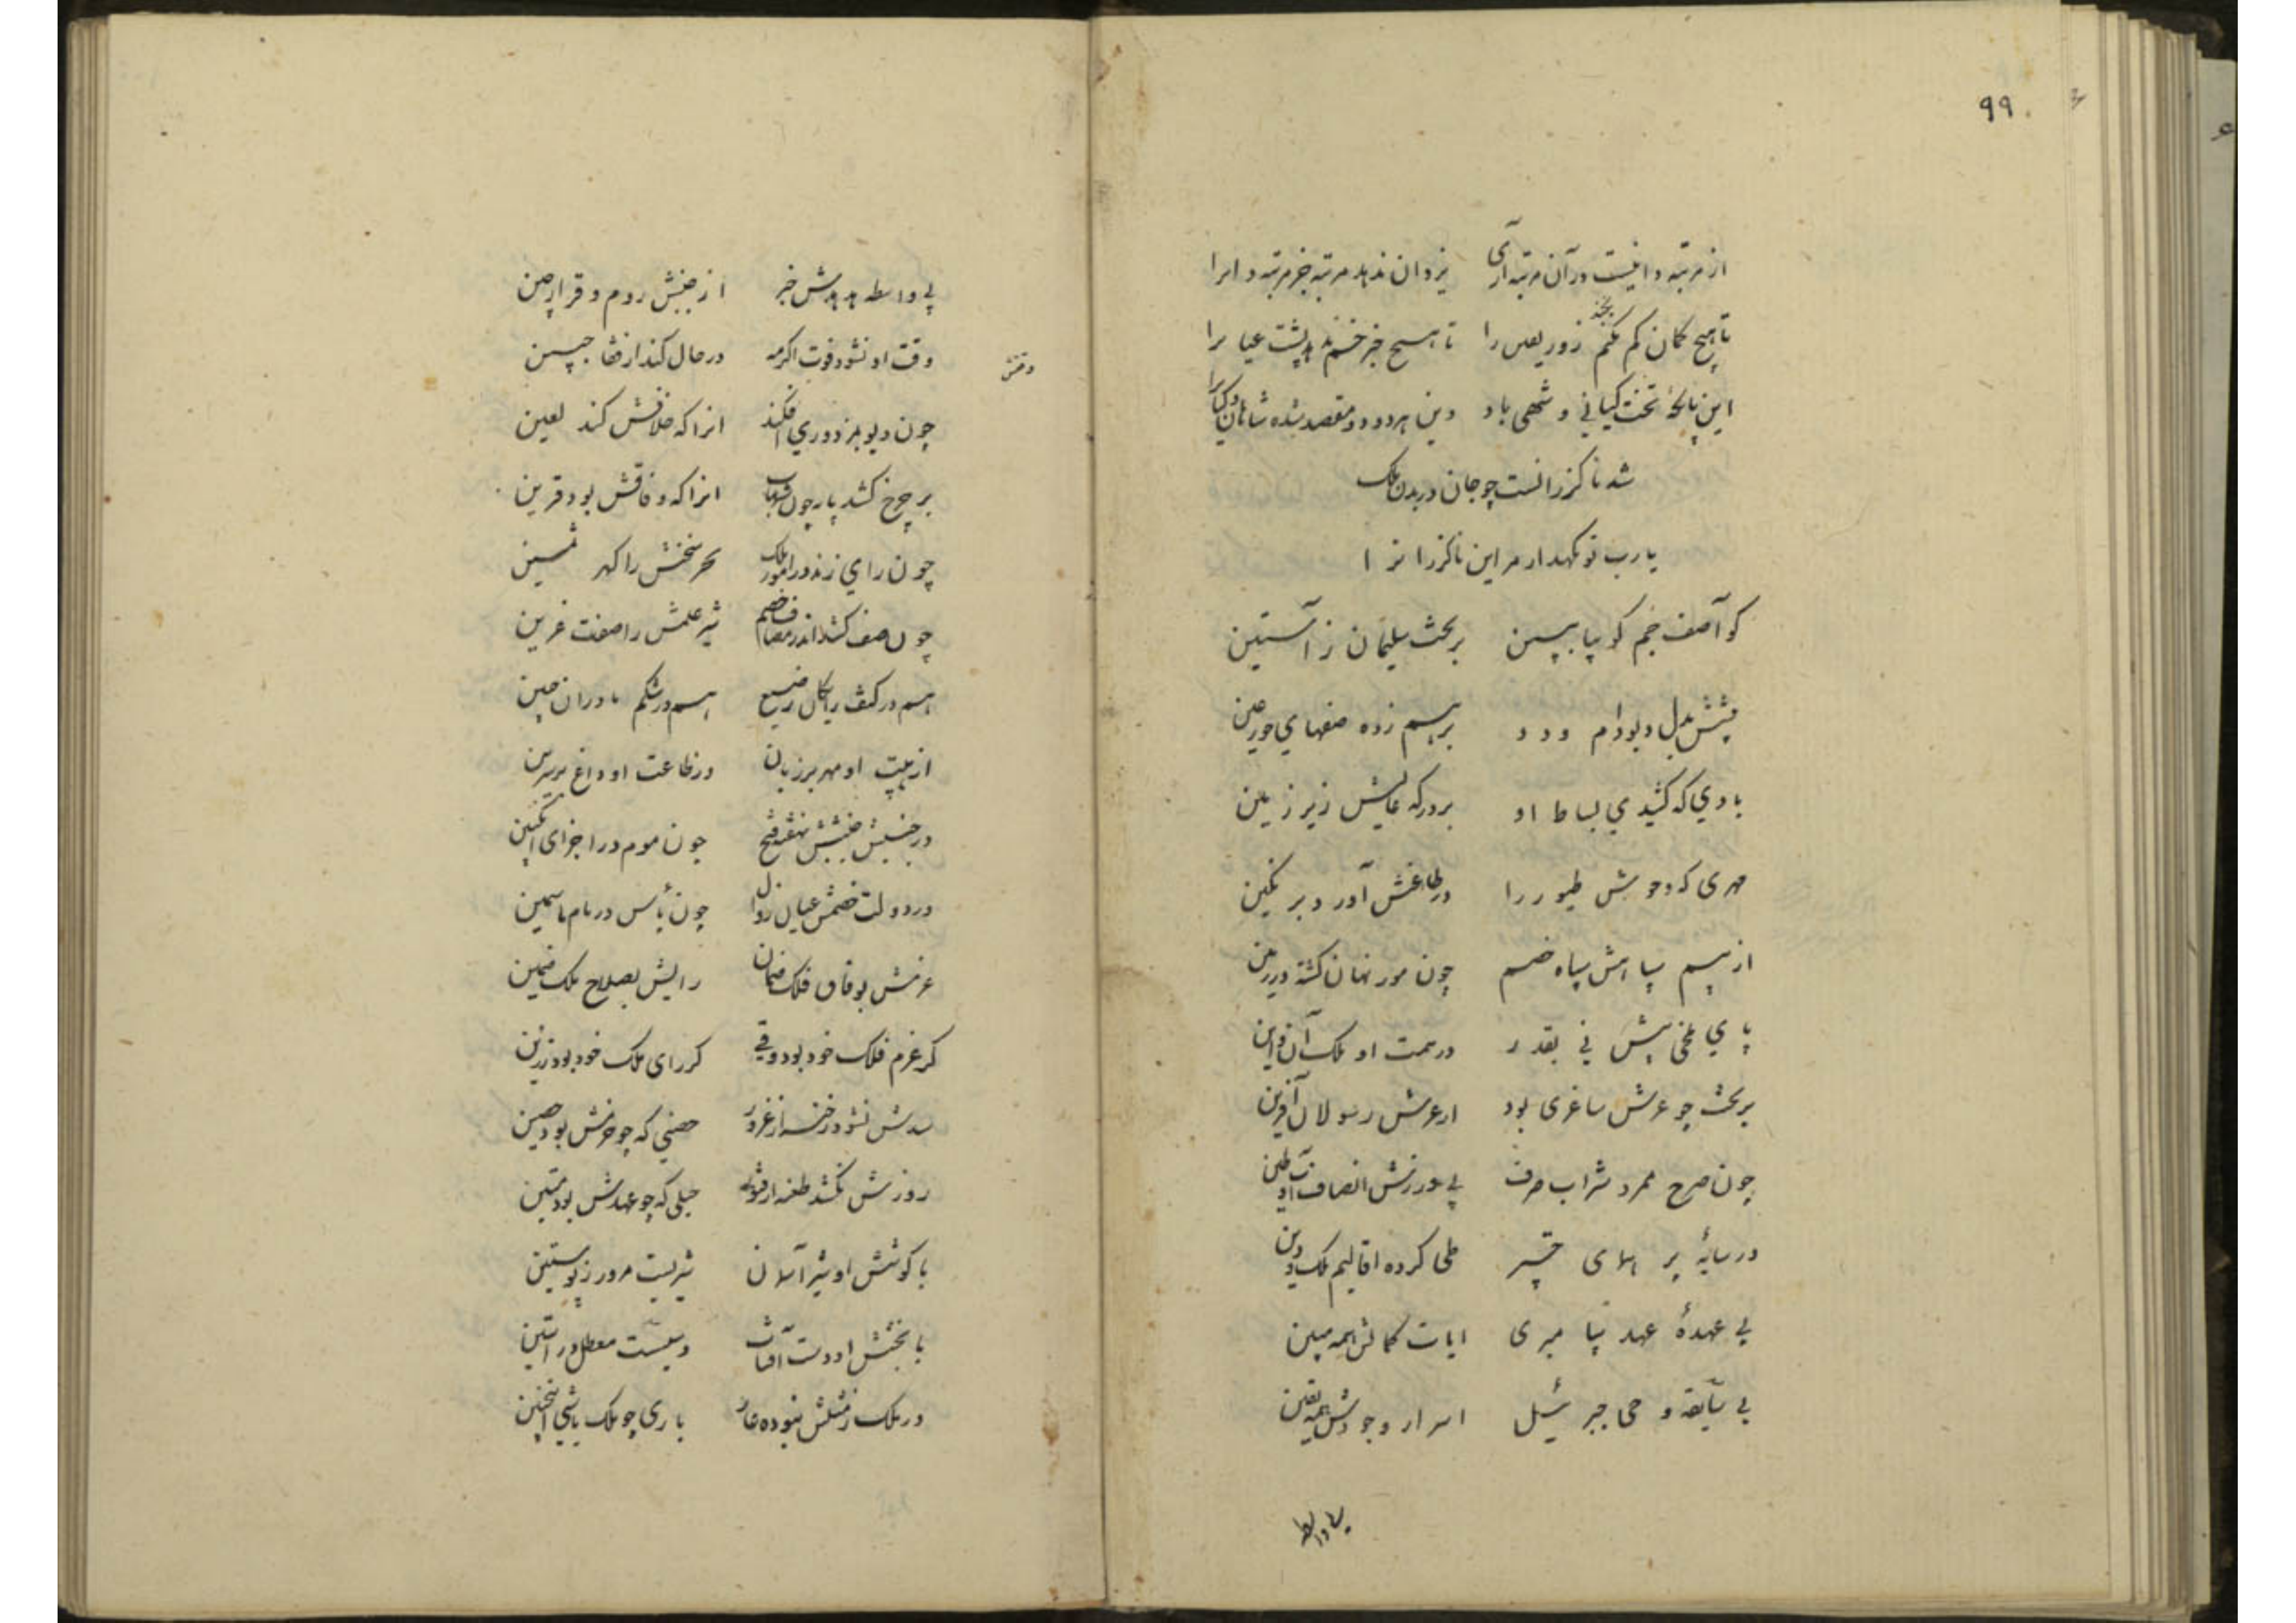 ۹۹
از مرتبه دانیست در آن مرتبه آری یزدان ندهد مرتبه جز مرتبه دانرا
تا هیچ کمان کم نکند زور یقین را تا هیچ خبر خم ندهد پشت عیان را
این پایگه تخت کیانی و شهی باد وین هر دو دو مقصد شده شاهان و کیان را
شد ناگزرانست چو جان در بدن ملک
یارب تو نگهدار مر این ناگزران را
کو آصف جم گو بیا ببین بر تخت سلیمان راستین
پیشش بدل دیو و دام و دد برهم زده صفهای حور عین
بادی که کشیدی بساط او بر درگه عالیش زیر زین
مهری که وحوش طیور را در طاعتش آورد بر نگین
از بیم سپاهش سپاه خصم چون مور نهان گشته در زمین
پای ملخی پیش نی بقدر در همت او ملک آن و این
بر تخت چو عرش سبا غری بود از عرش رسولان آفرین
چون صرح ممرد شراب صرف بی ورزش انصاف او
در سایهٔ پر همای چتر طی کرده اقالیم ملک و دین
بی عهدهٔ عهد پیامبری ایات کمالش همه مبین
بی سابقه وحی جبرئیل اسرار وجودش همه یقین
بی واسطه
بی واسطه هدهدش خبر از جنبش روم و قرار چین
وقتش
وقت او نشود فوت اگر چه در حال کند از قفا جبین
چون دیو بمزدوری افکند انرا که خلافش کند لعین
بر چرخ کشد پای چون شهاب انرا که وفاقش بود قرین
چون رای زند در امور ملک بحر سخنش را گهر ثمین
چون صف کشد اندر مصاف خصم شیر علمش را صفت عرین
هم در کنف رایگان رضیع هم در شکم مادران جنین
از هیبت او مهر بر زبان در طاعت او داغ بر سرین
در جنبش جیشش نهفته فتح چون موم در اجزای انگبین
در دولت خصمش عیان زوال چون یأس در نام یاسمین
عزمش بوفاق فلک ضمان رایش بصلاح ملک ضمین
گر عزم فلک خود بود قوی گر رای ملک خود بود رزین
سدش نشود رخنه از غرور حصنی که چو حزمش بود حصین
روزش نکشد طعنه از فتور حبلی که چو عهدش بود متین
با کوشش او شیر آسمان شیریست مزور ز پوستین
با بخشش او دست آفتاب دستیست معطل در آستین
در ملک ز مثلش نبوده عار باری چو ملک باشی اینچنین